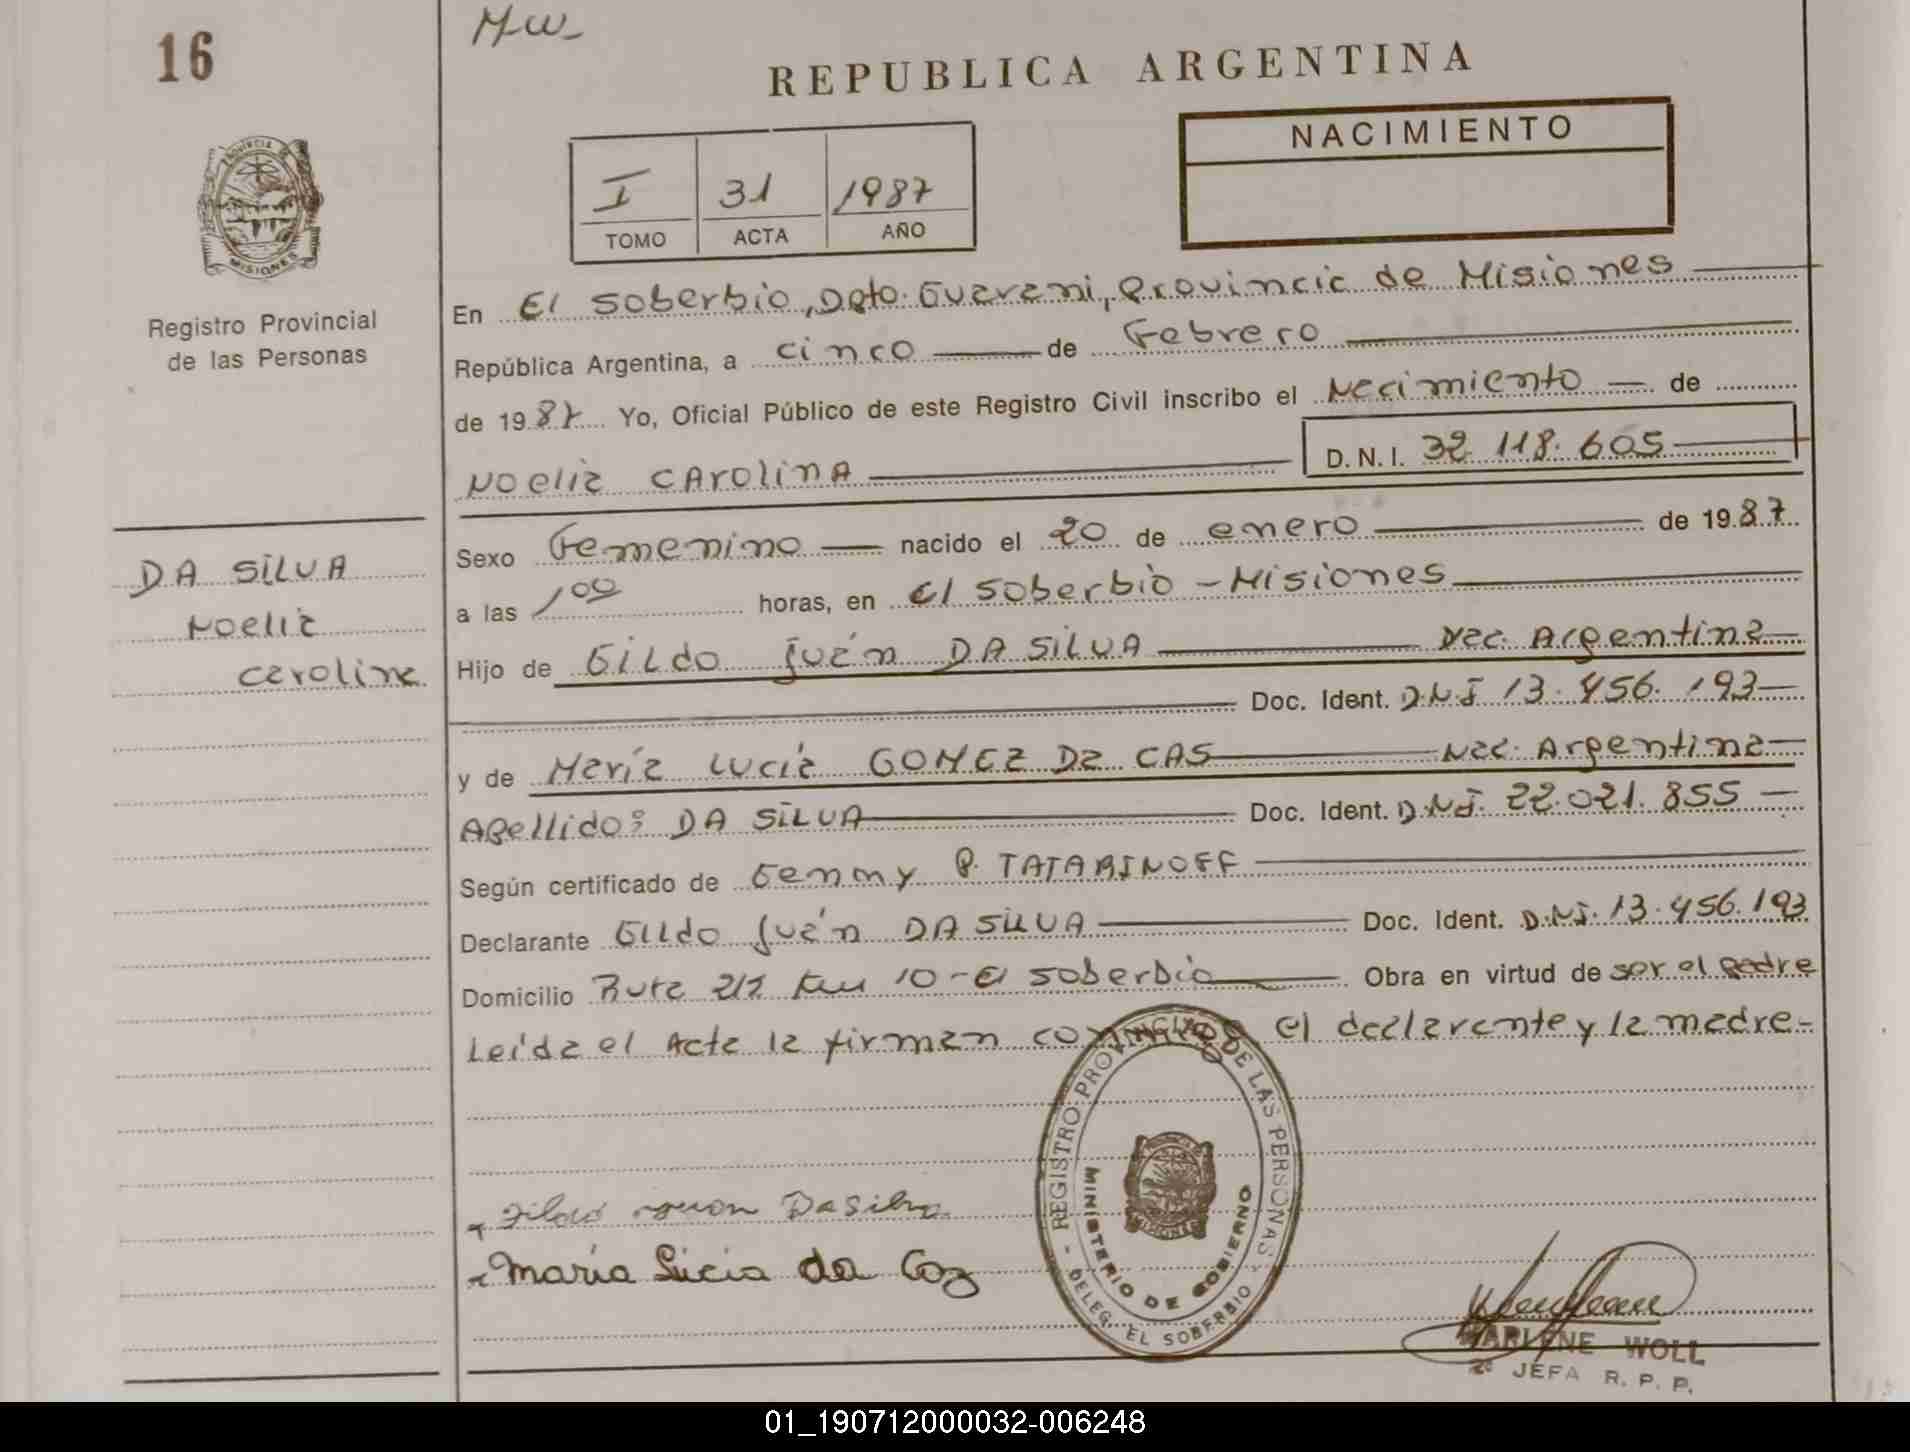 16
M-W-
REPUBLICA ARGENTINA
NACIMIENTO
I 31 1987
TOMO ACTA AÑO
PROVINCIA DE
MISIONES
Registro Provincial
de las Personas
En El Soberbio, Dpto. Guarani, Provincia de Misiones
República Argentina, a cinco de Febrero
de 1987 Yo, Oficial Público de este Registro Civil inscribo el Nacimiento de
D.N.I. 32.118.605
Noelia CArolinA
DA SiLVA
Noelia
Carolina
Sexo Femenino nacido el 20 de enero de 1987
a las 1,00 horas, en El Soberbio - Misiones
Hijo de GiLdo Juán DA SiLVA Nac. Argentina
Doc. Ident. D.N.I 13.456.193
y de María Lucía GOMEZ Da CAS Nac. Argentina
Apellido: DA SiLVA Doc. Ident. D.N.I. 22.021.855
Según certificado de Genny P. TATARINOFF
Declarante GiLdo Juán DA SiLVA Doc. Ident. D.N.I. 13.456.193
Domicilio Ruta 212 Km 10 - El Soberbio Obra en virtud de ser el padre
Leída el Acta la firman conmigo el declarante y la madre-
REGISTRO PROVINCIAL DE LAS PERSONAS
MINISTERIO DE GOBIERNO
MISIONES
- DELEG. EL SOBERBIO -
Juan Da Silva
María Lucia da Coz
MARLENE WOLL
2º JEFA R. P. P.
01_190712000032-006248